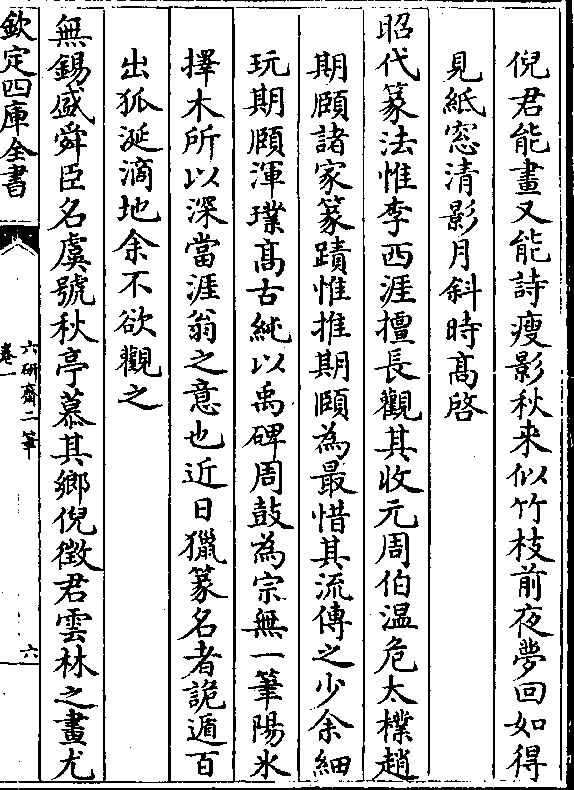 倪君能畫又能詩瘦影秋来似竹枝前夜夢回如得
見紙窓清影月斜時髙啓
昭代篆法惟李西涯擅長觀其收元周伯温危太樸趙
期頤諸家篆蹟惟推期頤為最惜其流傳之少余細
玩期頤渾璞髙古純以禹碑周鼓為宗無一筆陽氷
擇木所以深當涯翁之意也近日獵篆名者詭遁百
出狐涎滴地余不欲觀之
無錫盛舜臣名虞號秋亭慕其鄉倪徴君雲林之畫尤
欽定四庫全書
六研齋二筆
卷一
六